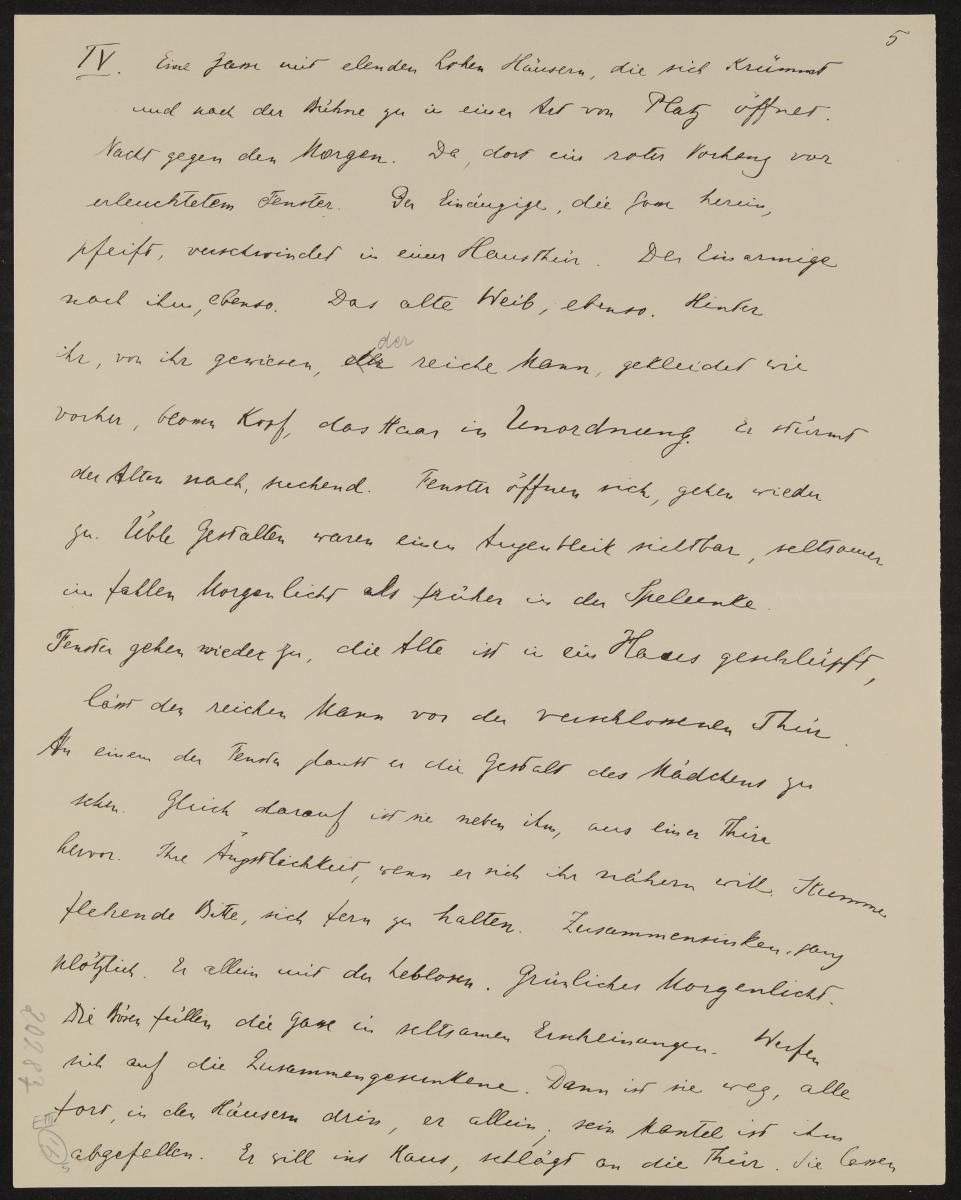 5
IV. Eine Gasse mit elenden hohen Häusern, die sich krümmt
und nach der Bühne zu in einer Art von Platz öffnet.
Nacht gegen den Morgen. Da, dort ein roter Vorhang vor
erleuchtetem Fenster. Der Einäugige, die Gasse herein,
pfeift, verschwindet in einer Hausthür. Der Einarmige
nach ihm, ebenso. Das alte Weib, ebenso. Hinter
der
ihr, von ihr gewiesen, reiche Mann, gekleidet wie
vorher, blossen Kopf, das Haar in Unordnung. Er stürmt
der Alten nach, suchend. Fenster öffnen sich, gehen wieder
zu. Üble Gestalten waren einen Augenblick sichtbar, seltsamer
im fahlen Morgenlicht als früher in der Spelunke.
Fenster gehen wieder zu, die Alte ist in ein Haus geschlüpft,
lässt den reichen Mann vor der verschlossenen Thür.
An einem der Fenster glaubt er die Gestalt des Mädchens zu
sehen. Gleich darauf ist sie neben ihm, aus einer Thüre
hervor. Ihre Ängstlichkeit, wenn er sich ihr nähern will. Stumme
flehende Bitte, sich fern zu halten. Zusammensinken, ganz
plötzlich. Er allein mit der Leblosen. Grünliches Morgenlicht.
Die Bösen füllen die Gasse in seltsamen Erscheinungen. Werfen
sich auf die Zusammengesunkene. Dann ist sie weg, alle
fort, in den Häusern drin, er allein, sein Mantel ist ihm
abgefallen. Er will ins Haus, schlägt an die Thür. Sie lassen
20287
E III